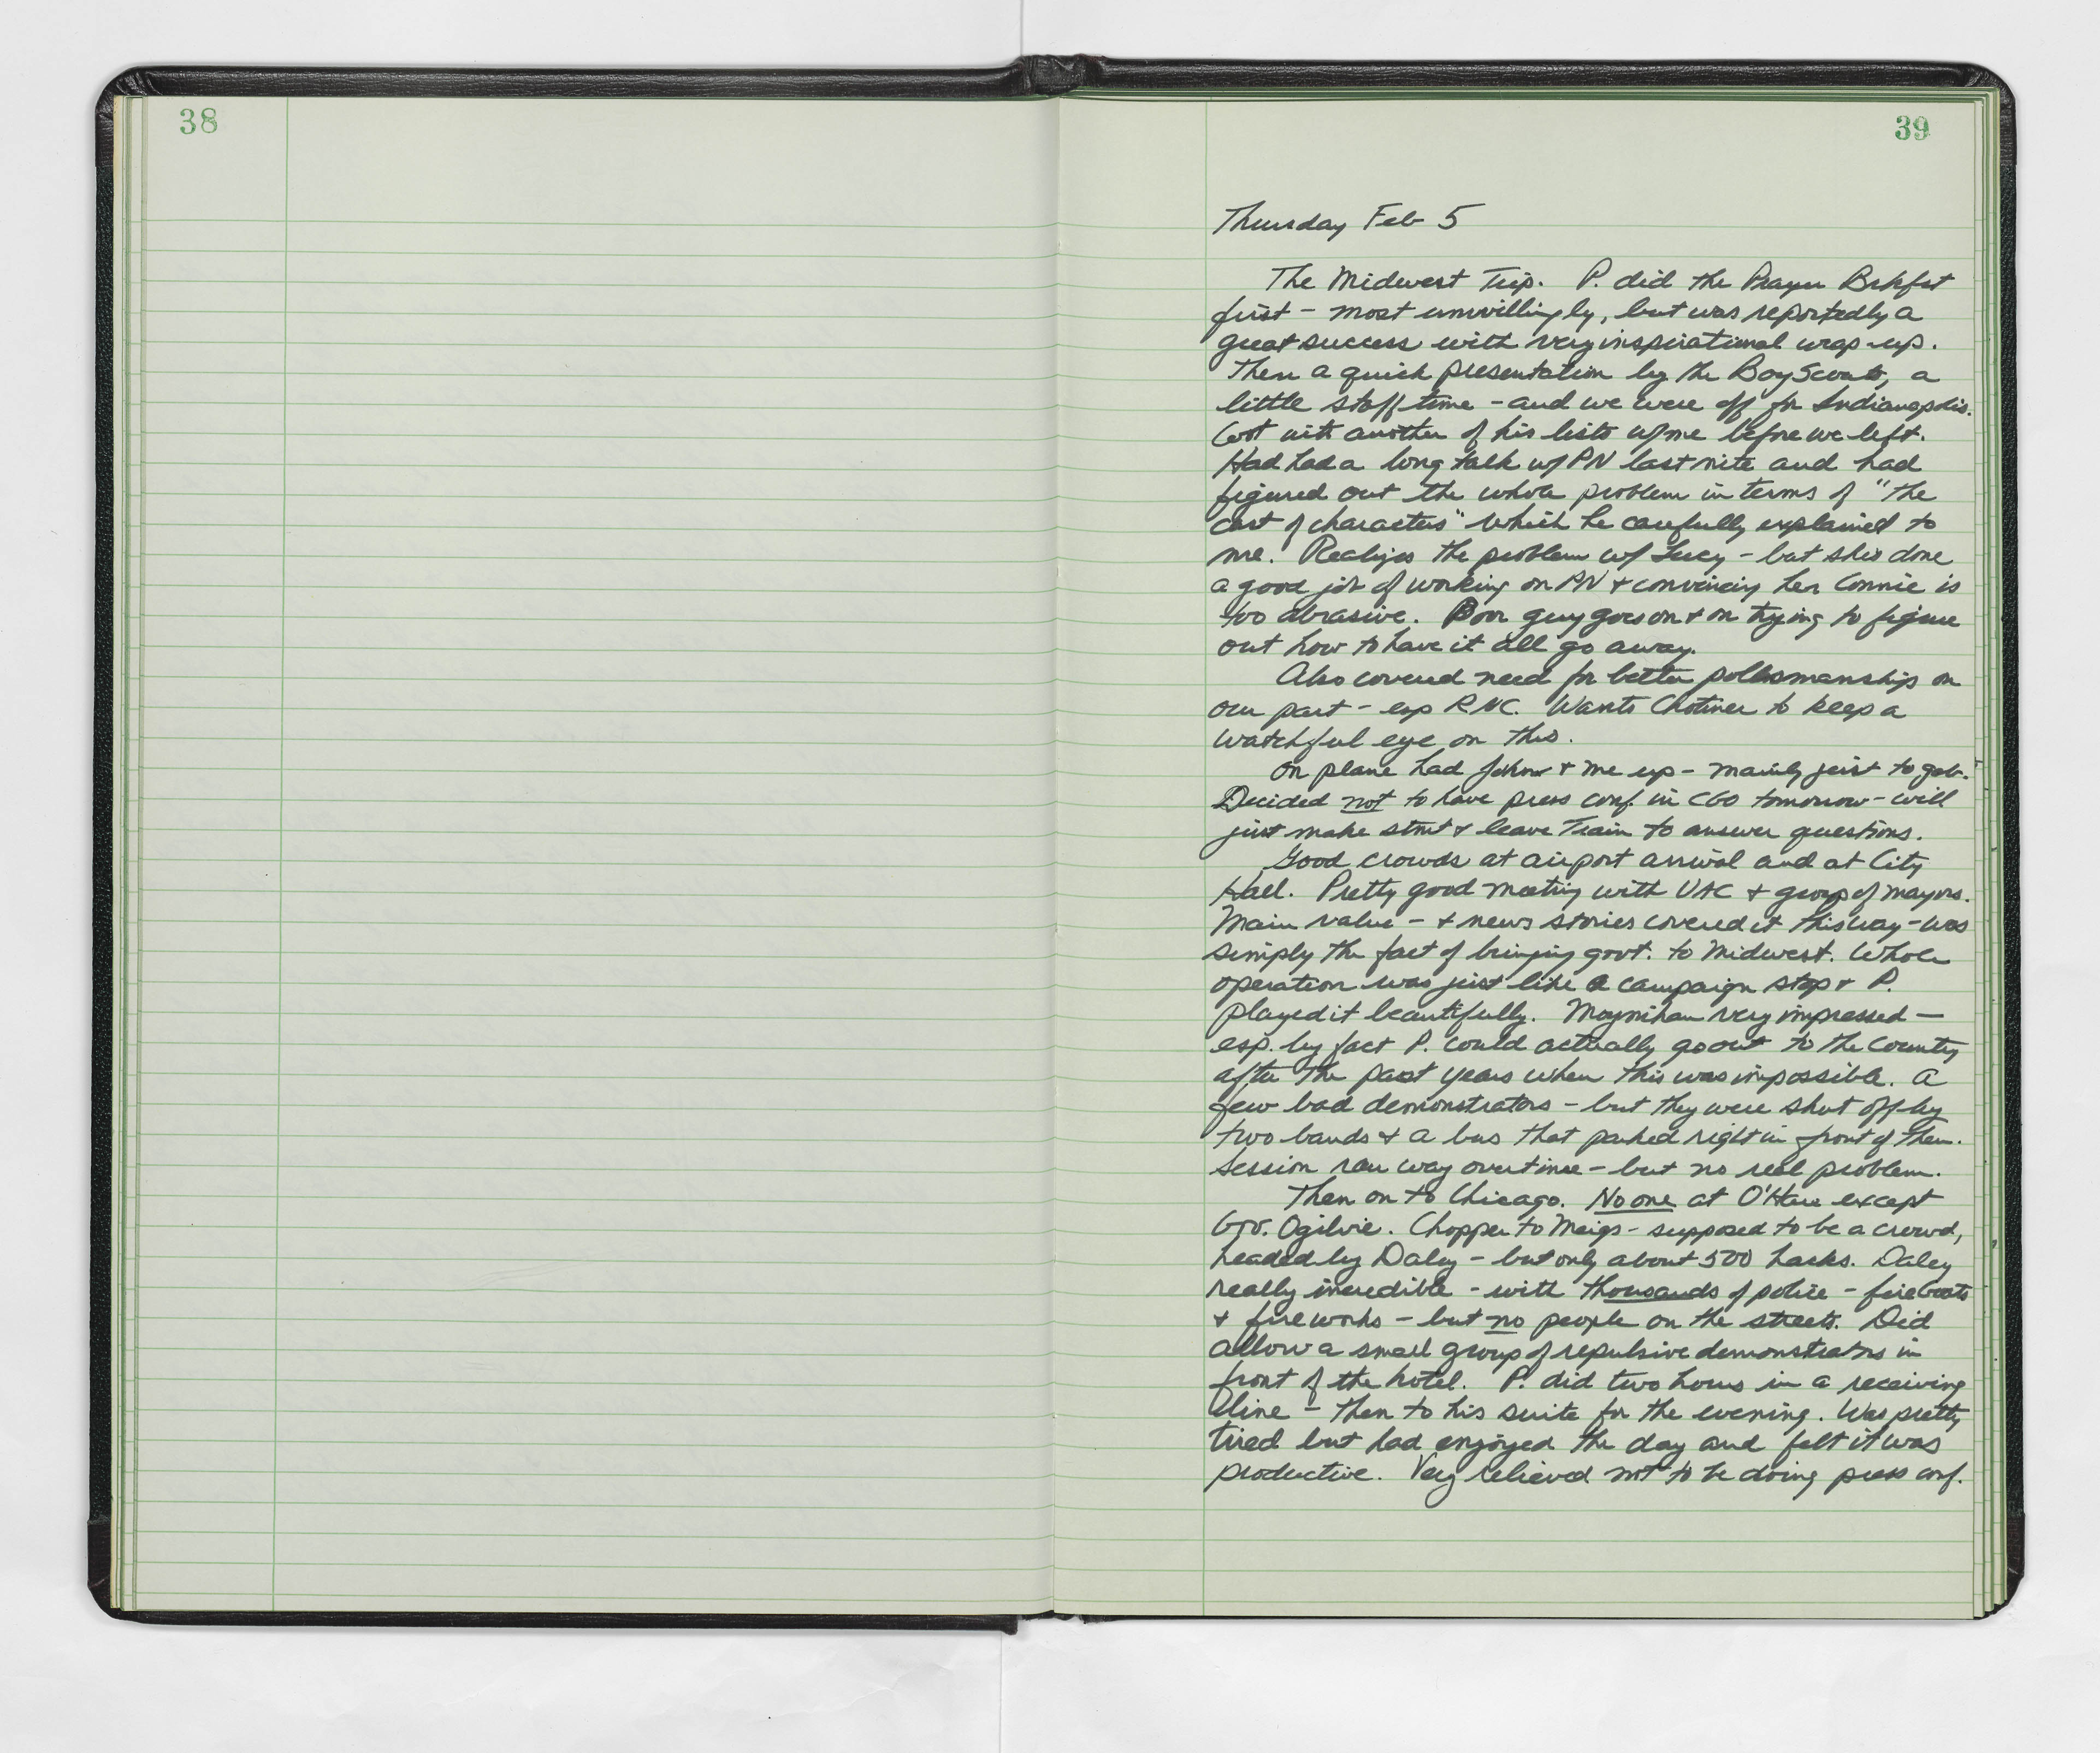 38
39
Thursday Feb 5
The Midwest Trip. P. did the Prayer Brkfst
first - most unwillingly, but was reportedly a
great success with very inspirational wrap-up.
Then a quick presentation by the Boy Scouts, a
little staff time - and we were off for Indianapolis.
Got with another of his lists w/me before we left.
Had had a long talk w/ PN last nite and had
figured out the whole problem in terms of "the
cast of characters" which he carefully explained to
me. Realizes the problem w/ Lucy - but she's done
a good job of working on PN & convincing her Connie is
too abrasive. Poor guy goes on & on trying to figure
out how to have it all go away.
Also covered need for better pollsmanship on
our part - esp RNC. Wants Chotiner to keep a
watchful eye on this.
On plane had John & me up - mainly just to gab.
Decided not to have press conf. in CGO tomorrow - will
just make stmt & leave Train to answer questions.
Good crowds at airport arrival and at City
Hall. Pretty good meeting with UAC & group of mayors.
Main value - & news stories covered it this way - was
simply the fact of bringing govt. to Midwest. Whole
operation was just like a campaign stop & P.
played it beautifully. Moynihan very impressed -
esp. by fact P. could actually go out to the country
after the past years when this was impossible. A
few bad demonstrators - but they were shut off by
two bands & a bus that parked right in front of them.
Session ran way overtime - but no real problem.
Then on to Chicago. No one at O'Hare except
Gov. Ogilvie. Chopper to Meigs - supposed to be a crowd,
headed by Daley - but only about 500 hacks. Daley
really incredible - with thousands of police - fireboats
& fireworks - but no people on the streets. Did
allow a small group of repulsive demonstrators in
front of the hotel. P. did two hours in a receiving
line - then to his suite for the evening. Was pretty
tired but had enjoyed the day and felt it was
productive. Very relieved not to be doing press conf.